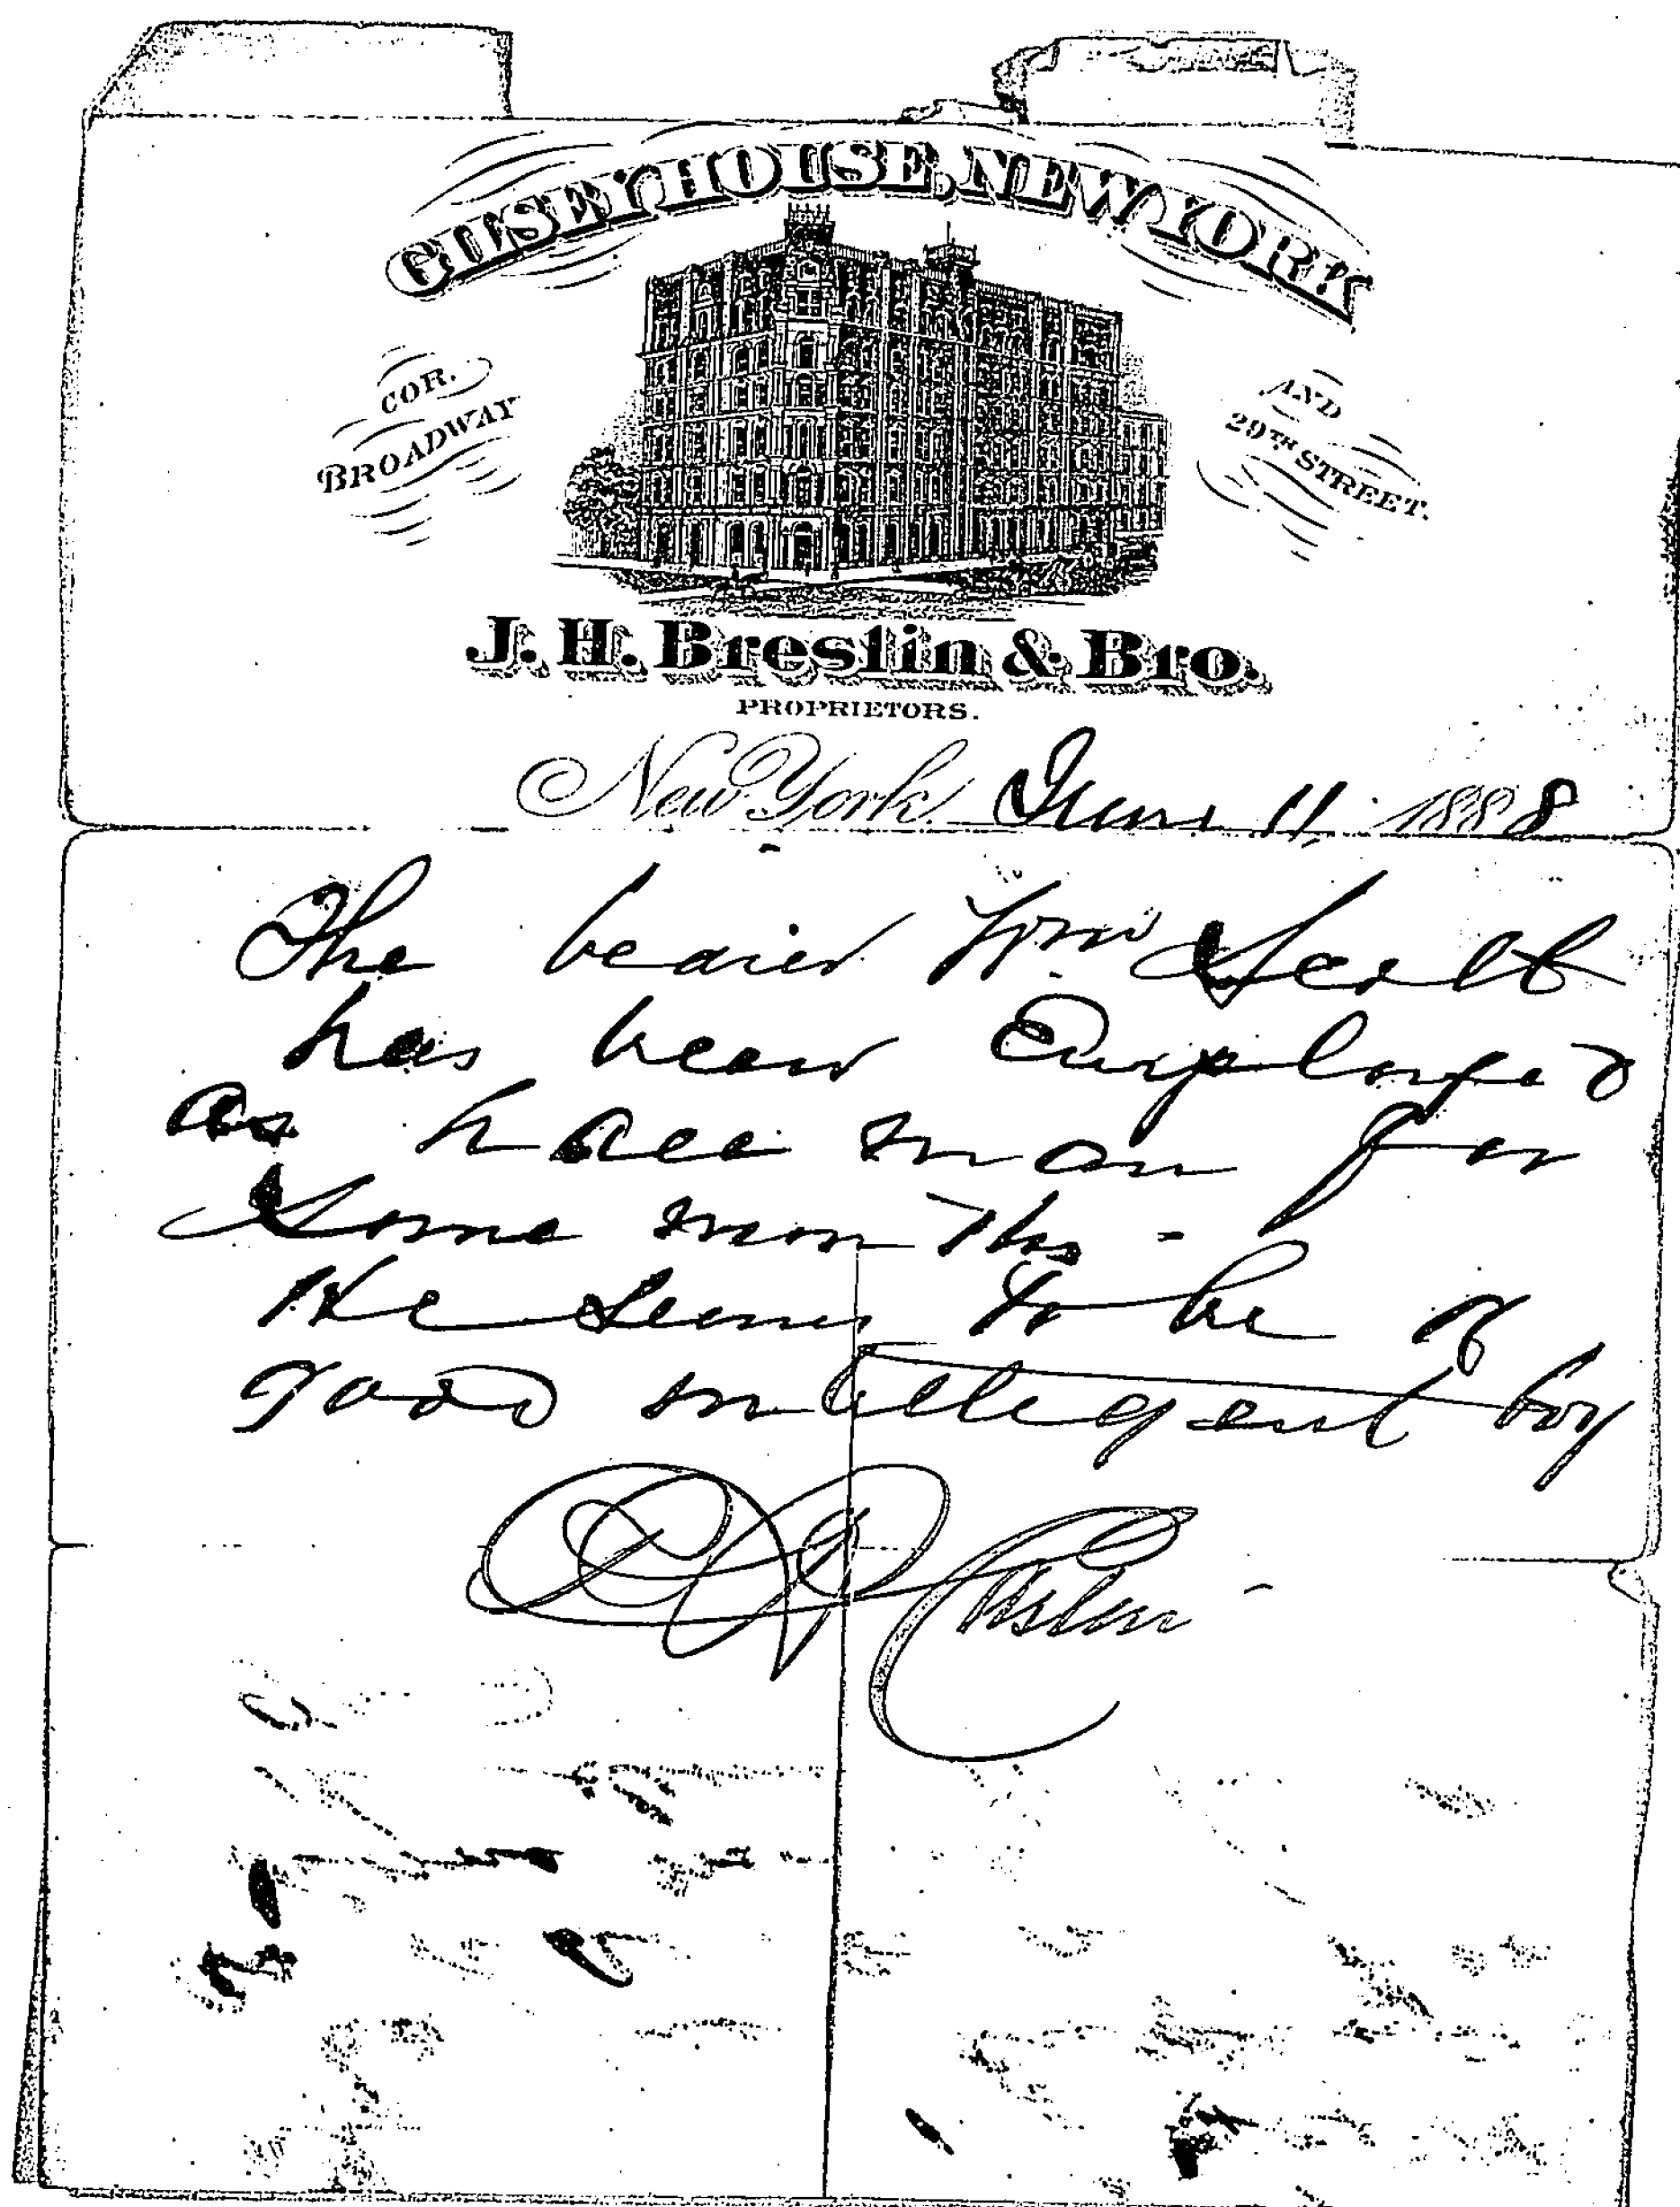 GILSEY HOUSE, NEW YORK
COR.
BROADWAY
AND
29TH STREET.
J. H. Breslin & Bro.
PROPRIETORS.
New York June 11 1888
The bearer Wm Scott
has been Employed
as hall man for
some months -
He seems to be a
good intelligent boy